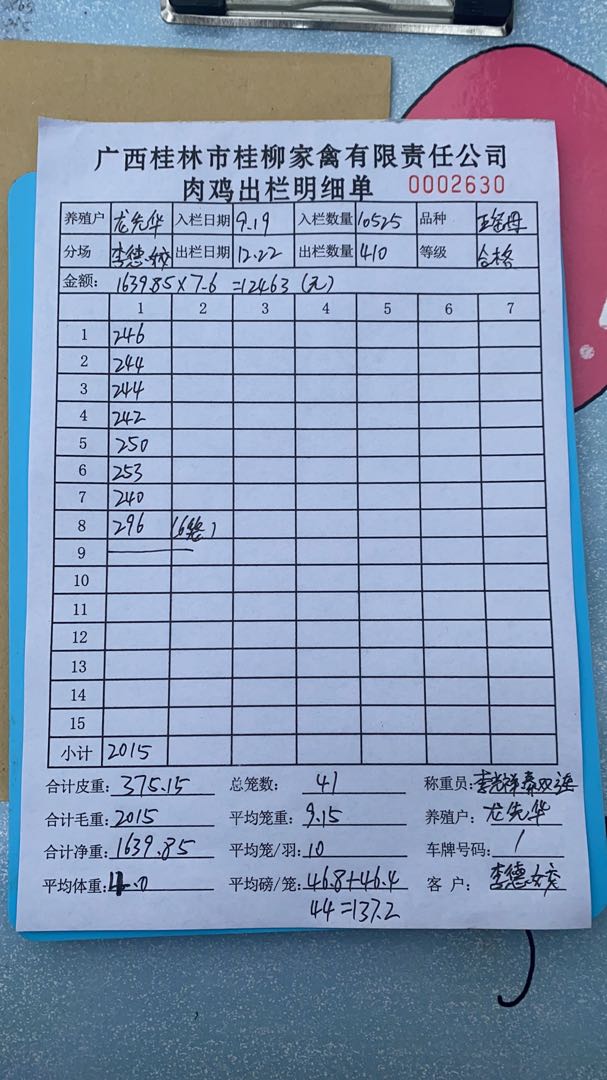 广西桂林市桂柳家禽有限责任公司
肉鸡出栏明细单 0002630
养殖户 龙先华 入栏日期 9.19 入栏数量 10525 品种
分场 李德姣 出栏日期 12.22 出栏数量 410 等级 合格
金额: 1639.85×7.6=12463(元)
1 2 3 4 5 6 7
1 246
2 244
3 244
4 242
5 250
6 253
7 240
8 296 (6笼)
9
10
11
12
13
14
15
小计 2015
合计皮重: 375.15 总笼数: 41 称重员:
合计毛重: 2015 平均笼重: 9.15 养殖户: 龙先华
合计净重: 1639.85 平均笼/羽: 10 车牌号码: 1
平均体重: 4.0 平均磅/笼: 46.8+46.4 客户: 李德姣
44=137.2